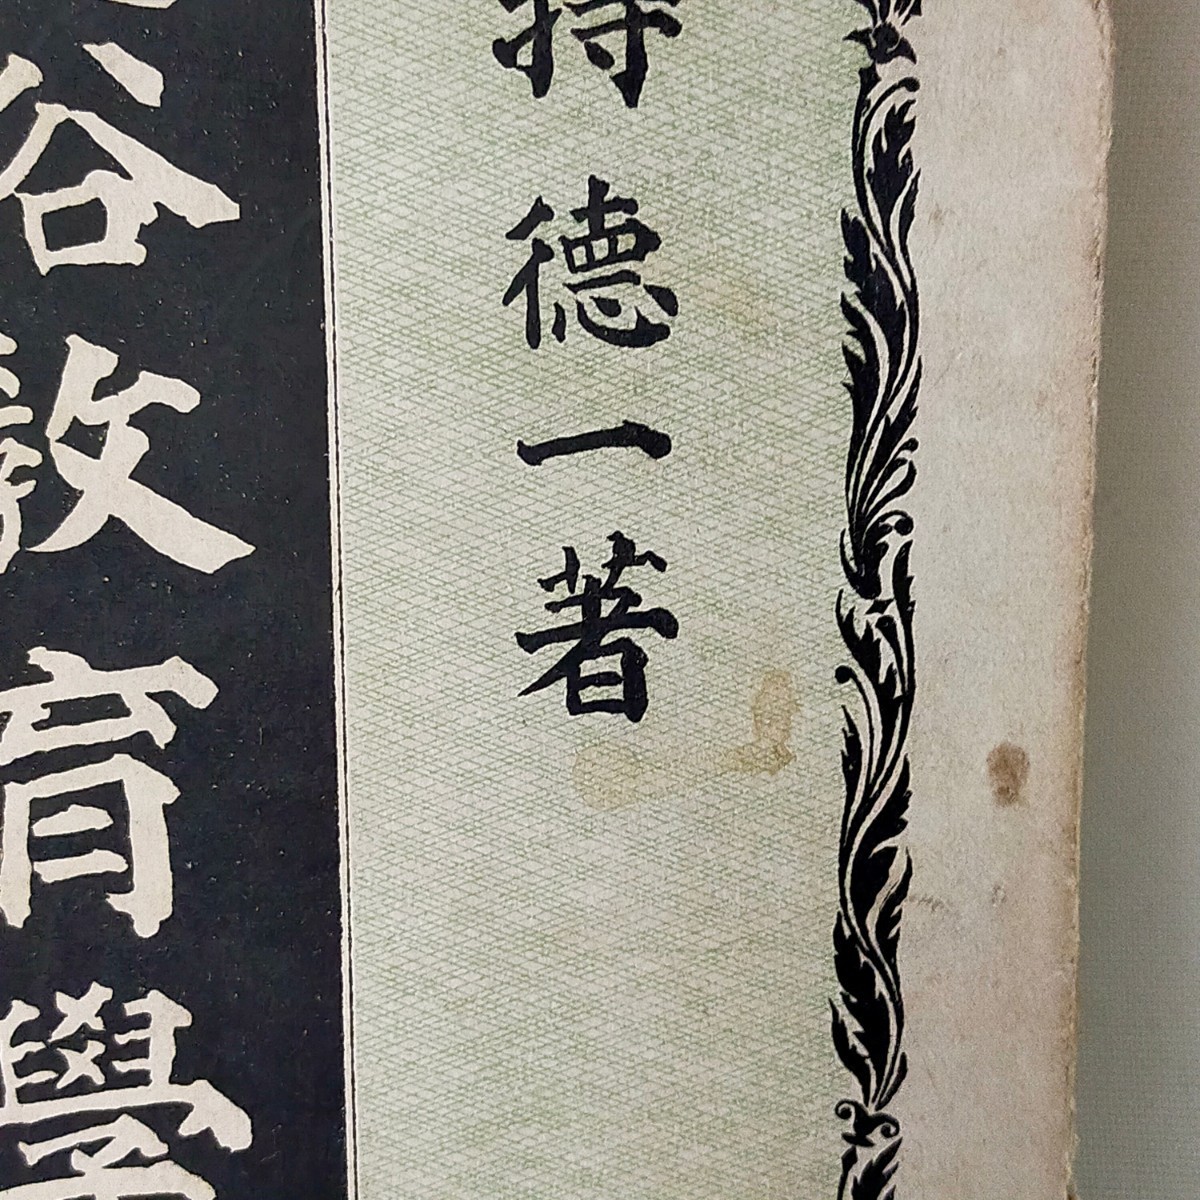 持德一著
谷教育學